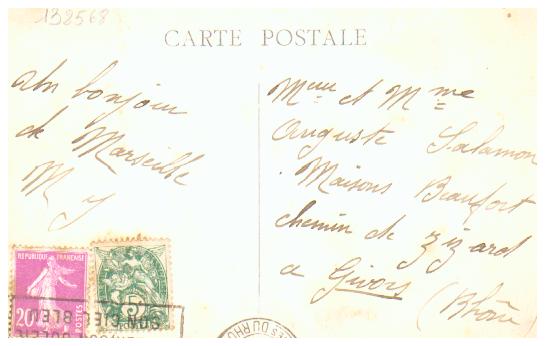 132568
CARTE POSTALE
un bonjour
de Marseille
M y
Meur et Mme
Auguste Salamon
Maisons Beaufort
chemin de Zizard
a Givors
(Rhône)
RÉPUBLIQUE FRANÇAISE
20
POSTES
5
SON CIEL BLEU
DU RHÔ